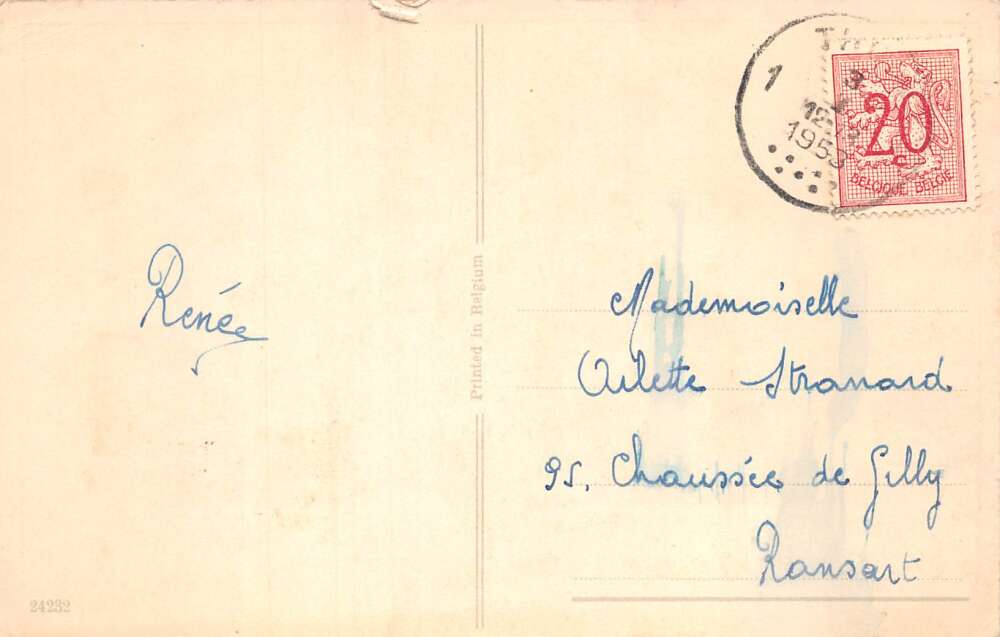 Renée
24232
Printed in Belgium
1
3
12-
1953
20
c
BELGIQUE BELGIE
Mademoiselle
Arlette Stranard
95, Chaussée de Gilly
Ransart